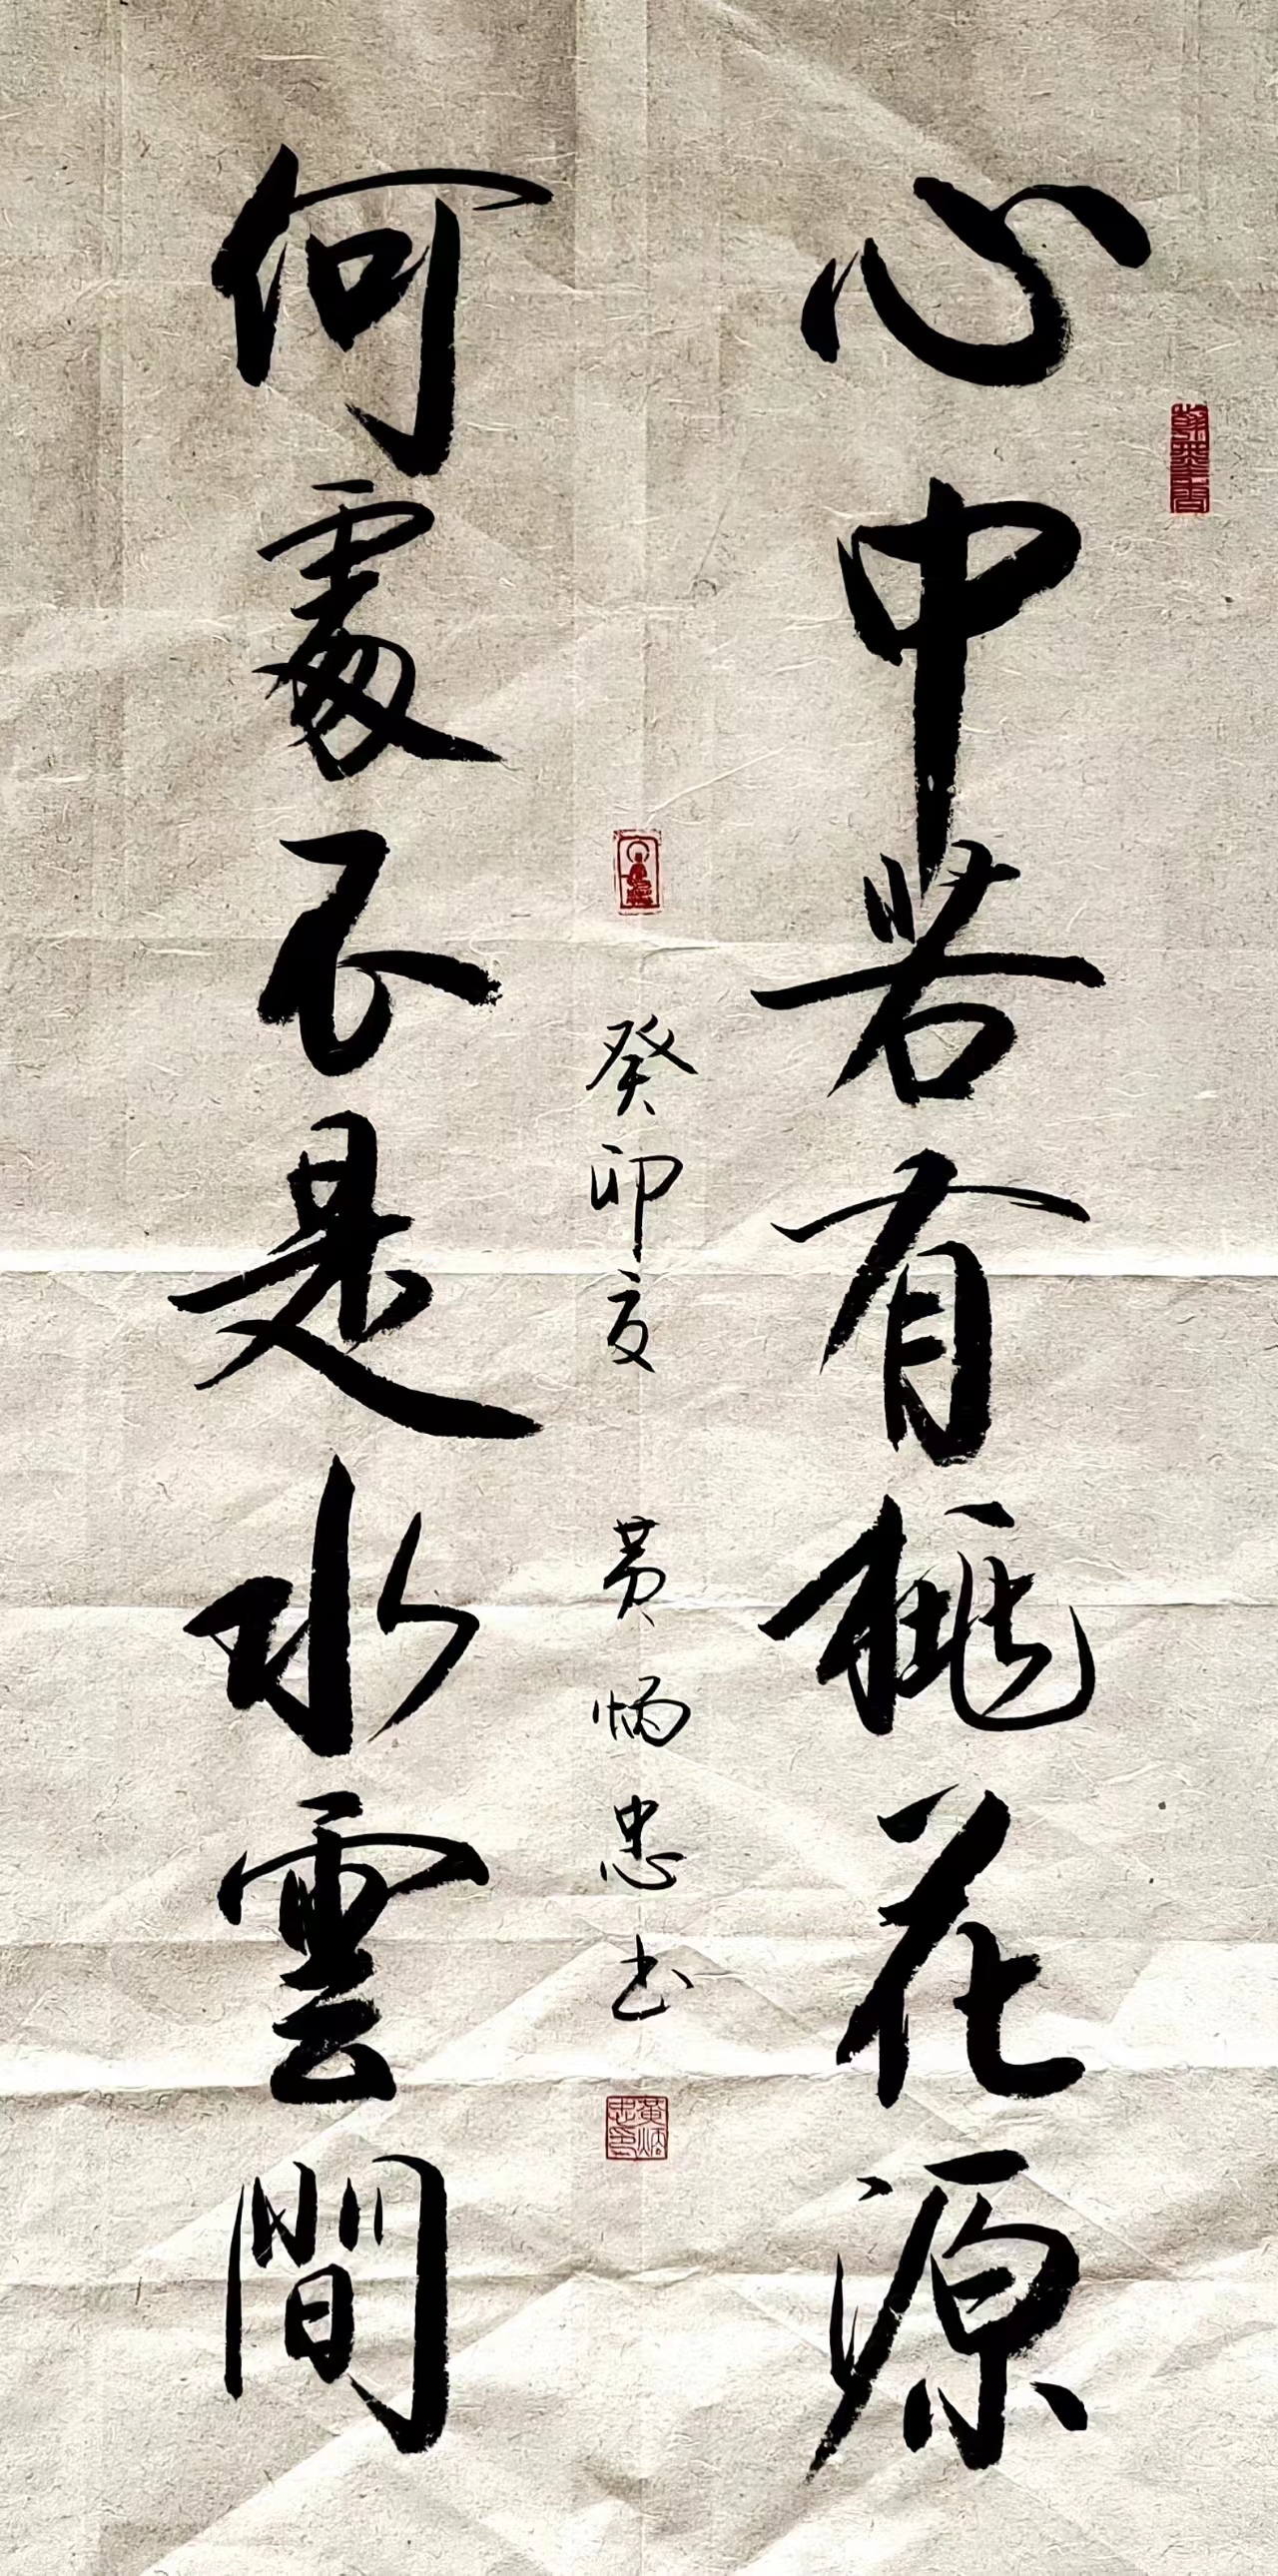 心中若有桃花源
何處不是水雲間
癸卯夏 黄炳忠书
翰墨香
黃炳忠印